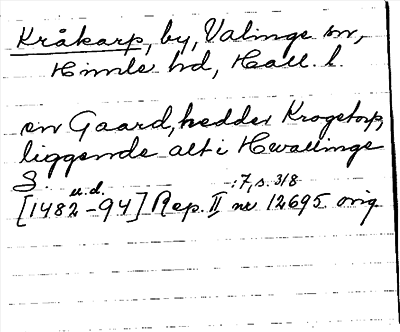 Kråkarp, by, Valinge sn,
Himle hd, Hall. l.
en Gaard, hedder Krogetorp,
liggende alt i Hwallinge
S.
[1482 u.d. -94] Rep. II :7, s. 318 nr 12695 orig.